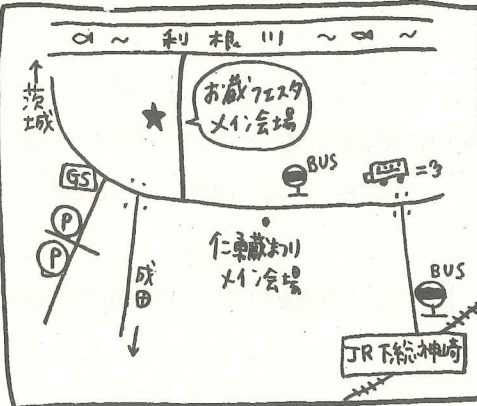 ~ 利根川 ~ ~
↑
茨城
お蔵フェスタ
メイン会場
★
BUS
=3
GS
P
P
仁勇蔵まつり
メイン会場
成田
↓
BUS
JR下総神崎